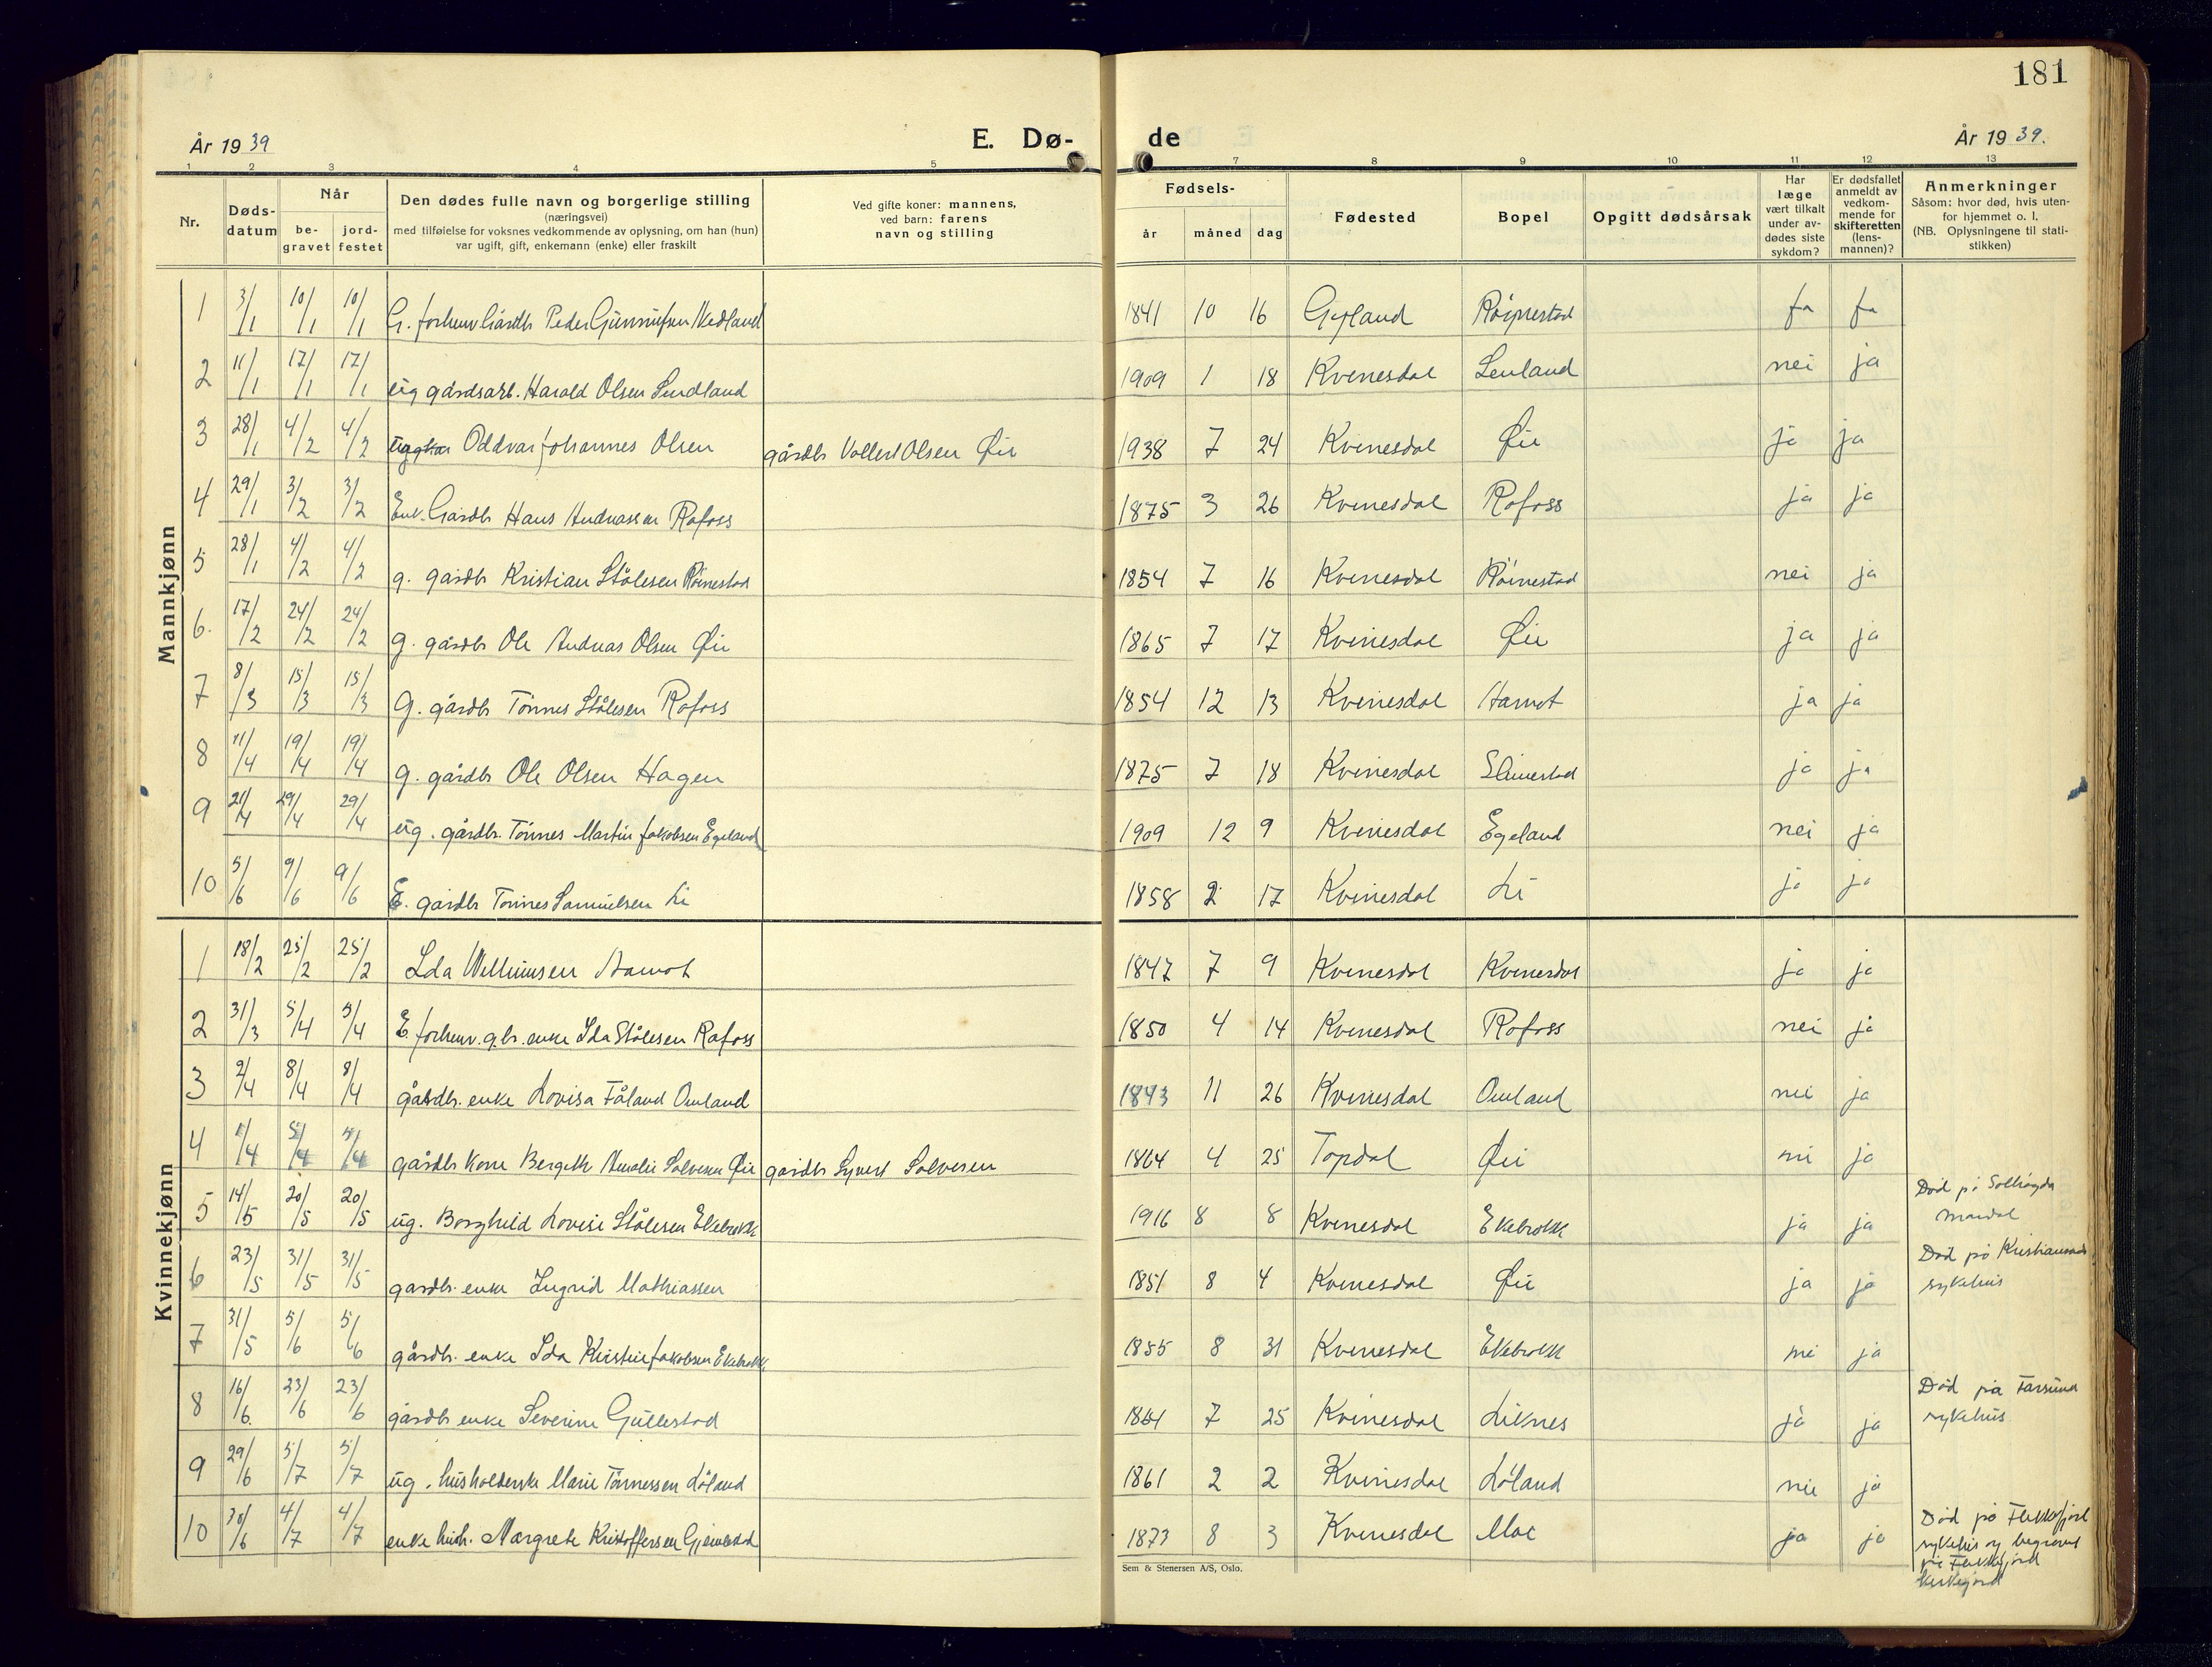 181
År 1939 E. Dø- de År 1939.
1 2 3 4 5 7 8 9 10 11 12 13
Nr. Døds-datum Når be-gravet jord-festet Den dødes fulle navn og borgerlige stilling (næringsvei) med tilføielse for voksnes vedkommende av oplysning, om han (hun) var ugift, gift, enkemann (enke) eller fraskilt Ved gifte koner: mannens, ved barn: farens navn og stilling Fødsels- år måned dag Fødested Bopel Opgitt dødsårsak Har læge vært tilkalt under av-dødes siste sykdom? Er dødsfallet anmeldt av vedkom-mende for skifteretten (lens-mannen)? Anmerkninger Såsom: hvor død, hvis uten-for hjemmet o. l. (NB. Oplysningene til stati-stikken)
Mannkjønn
1 3/1 10/1 10/1 G. forhenv. Gårdbr Peder Gunnufsen 1841 10 16 Gyland Röynestad ja ja
2 11/1 17/1 17/1 ug gårdsarb. Harald Olsen Sindland 1909 1 18 Kvinesdal nei ja
3 28/1 4/2 4/2 Oddvar Johannes Olsen gårdbr Vollert Olsen Øie 1938 7 24 Kvinesdal Øie ja ja
4 29/1 3/2 3/2 Enk. Gårdbr Hans Andreassen Rafoss 1875 3 26 Kvinesdal Rafoss ja ja
5 28/1 4/2 4/2 g. gårdbr Kristian Stålesen Röinestad 1854 7 16 Kvinesdal Röinestad nei ja
6. 17/2 24/2 24/2 g. gårdbr Ole Andreas Olsen Øie 1865 7 17 Kvinesdal Øie ja ja
7 8/3 15/3 15/3 G. gårdbr Tönnes Stålesen Rafoss 1854 12 13 Kvinesdal Aamot ja ja
8 11/4 19/4 19/4 g. gårdbr Ole Olsen Hagen 1875 7 18 Kvinesdal Slimestad ja ja
9 21/4 29/4 29/4 ug. gårdbr. Tönnes Martin Jakobsen Egeland 1909 12 9 Kvinesdal Egeland nei ja
10 5/6 9/6 9/6 E. gårdbr Tönnes Samuelsen Li 1858 2 17 Kvinesdal Li ja ja
Kvinnekjønn
1 18/2 25/2 25/2 Ida Willumsen Aamot 1847 7 9 Kvinesdal Kvinesdal ja ja
2 31/3 5/4 5/4 E. forhenv. g.br. enke Ida Stålesen Rafoss 1850 4 14 Kvinesdal Rafoss nei ja
3 2/4 8/4 8/4 gårdbr. enke Lovisa Fåland Omland 1843 11 26 Kvinesdal Omland nei ja
4 1/4 5/4 5/4 gårdbr kone Bergith Amalie Salvesen Øie gårdbr Syvert Salvesen 1864 4 25 Topdal Øie nei ja
5 14/5 20/5 20/5 ug. Borghild Lovise Stålesen Ekebrokk 1916 8 8 Kvinesdal Ekebrokk ja ja Död på Solhögda
6 23/5 31/5 31/5 gardbr. enke Ingrid Mathiassen 1851 8 4 Kvinesdal Øie ja ja Död på Kristiansands sykehus
7 31/5 5/6 5/6 gårdbr. enke Ida Kristine Jakobsen Ekebrokk 1855 8 31 Kvinesdal Ekebrokk nei ja
8 16/6. 23/6 23/6 gårdbr enke Severine Gullestad 1861 7 25 Kvinesdal Liknes ja ja Död på Farsund sykehus
9 29/6 5/7 5/7 ug. husholderske Marie Tönnessen Löland 1861 2 2 Kvinesdal Löland nei ja
10 30/6 4/7 4/7 enke hush. Margrete Kristoffersen Gjemlestad 1873 8 3 Kvinesdal Moe ja ja Död på Flekkefjord sykehus og begravet på Flekkefjord kirkegård
Sem & Stenersen A/S, Oslo.